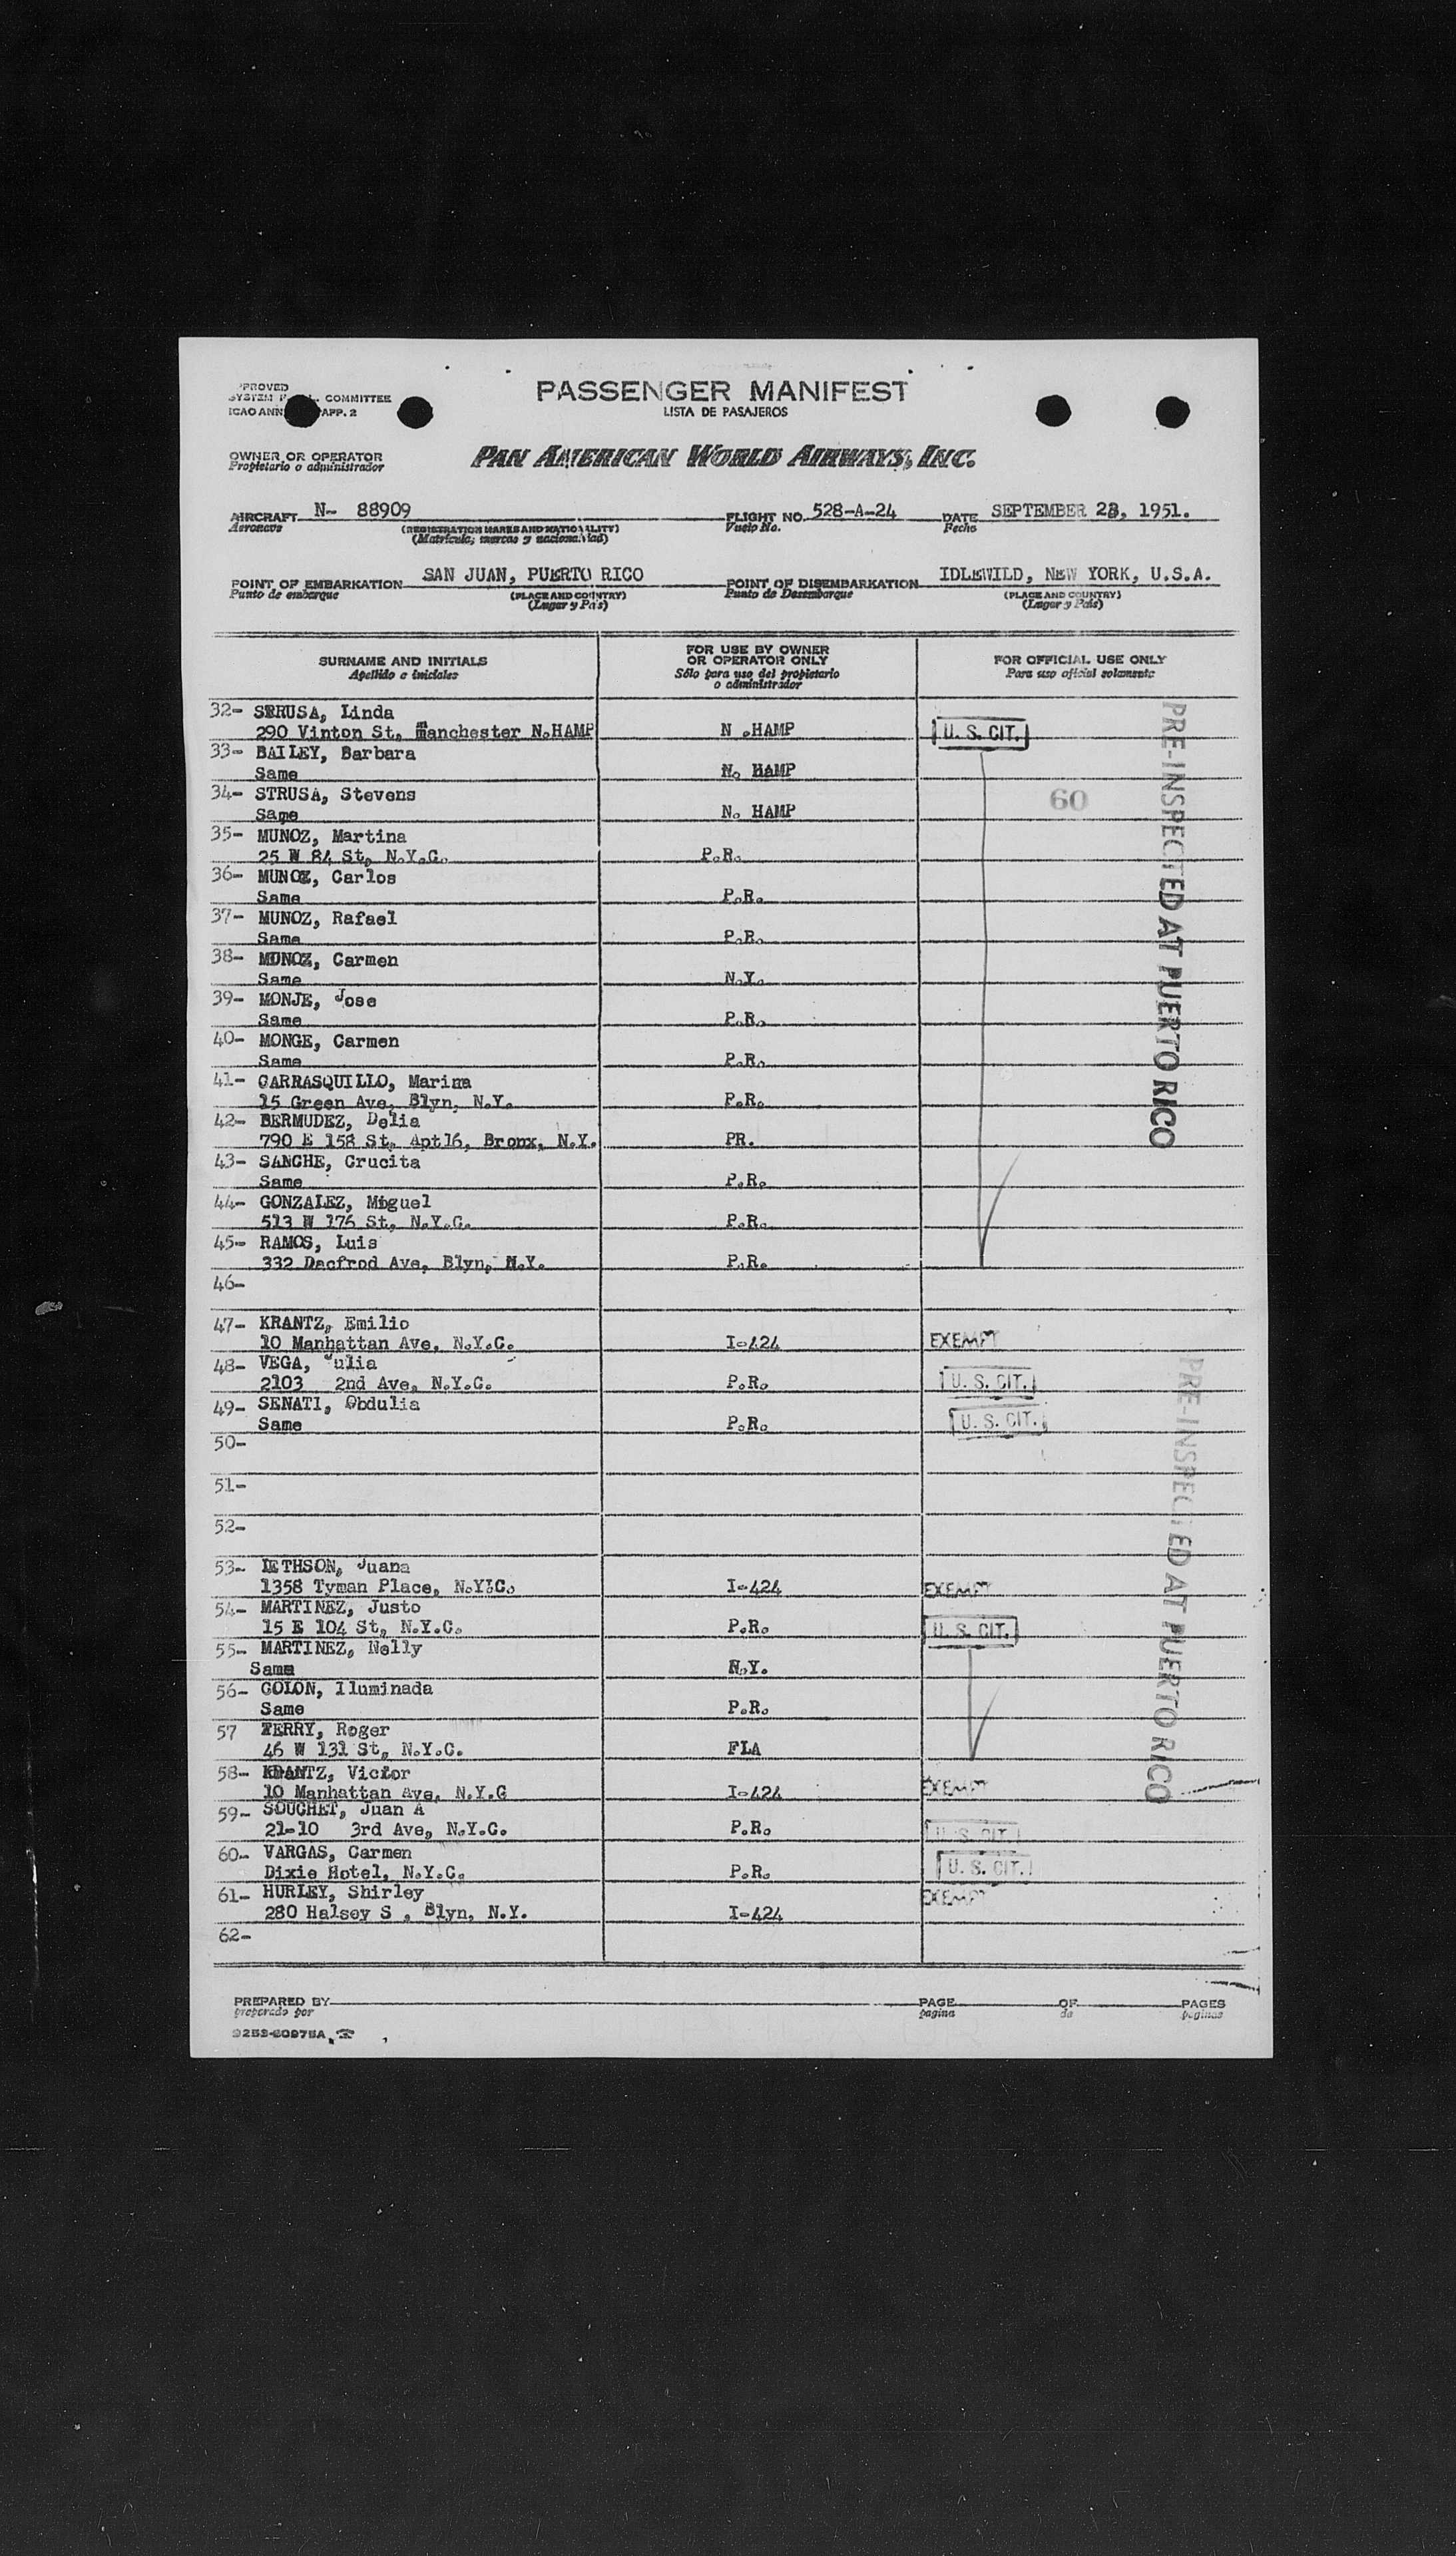 PROVED
SYSTEM COMMITTEE
ICAO ANN APP. 2
PASSENGER MANIFEST
LISTA DE PASAJEROS
OWNER OR OPERATOR
Propietario o administrador
PAN AMERICAN WORLD AIRWAYS, INC.
AIRCRAFT N- 88909 FLIGHT NO. 528-A-24 DATE SEPTEMBER 23, 1951.
Aeronave (REGISTRATION MARKS AND NATIONALITY) Vuelo No. Fecha
(Matricula; marcas y nacionalidad)
POINT OF EMBARKATION SAN JUAN, PUERTO RICO POINT OF DISEMBARKATION IDLEWILD, NEW YORK, U.S.A.
Punto de embarque (PLACE AND COUNTRY) Punto de Desembarque (PLACE AND COUNTRY)
(Lugar y País) (Lugar y País)
SURNAME AND INITIALS FOR USE BY OWNER OR OPERATOR ONLY FOR OFFICIAL USE ONLY
Apellido e iniciales Sólo para uso del propietario o administrador Para uso oficial solamente
32- SERUSA, Linda
290 Vinton St, manchester N.HAMP N .HAMP U. S. CIT.
33- BAILEY, Barbara
Same N. HAMP
34- STRUSA, Stevens 60
Same N. HAMP
35- MUNOZ, Martina
25 W 84 St, N.Y.C. P.R.
36- MUNOZ, Carlos
Same P.R.
37- MUNOZ, Rafael
Same P.R.
38- MUNOZ, Carmen
Same N.Y.
39- MONJE, Jose
Same P.R.
40- MONGE, Carmen
Same P.R.
41- CARRASQUILLO, Marina
15 Green Ave, Blyn, N.Y. P.R.
42- BERMUDEZ, Delia
790 E 158 St, Apt16, Bronx, N.Y. PR.
43- SANCHE, Crucita
Same P.R.
44- GONZALEZ, Miguel
513 W 176 St, N.Y.C. P.R.
45- RAMOS, Luis
332 Dacfrod Ave, Blyn, N.Y. P.R.
PRE-INSPECTED AT PUERTO RICO
46-
47- KRANTZ, Emilio
10 Manhattan Ave, N.Y.C. I-424 EXEMPT
48- VEGA, Julia
2103 2nd Ave, N.Y.C. P.R. U. S. CIT.
49- SENATI, Obdulia
Same P.R. U. S. CIT.
50-
51-
52-
53- IETHSON, Juana
1358 Tyman Place, N.Y.C. I-424 EXEMPT
54- MARTINEZ, Justo
15 E 104 St, N.Y.C. P.R. U. S. CIT.
55- MARTINEZ, Nelly
Same N.Y.
56- COLON, Iluminada
Same P.R.
57 TERRY, Roger
46 W 131 St, N.Y.C. FLA
58- KRANTZ, Victor
10 Manhattan Ave, N.Y.C I-424 EXEMPT
59- SOUCHET, Juan A
21-10 3rd Ave, N.Y.C. P.R. U. S. CIT.
60- VARGAS, Carmen
Dixie Hotel, N.Y.C. P.R. U. S. CIT.
61- HURLEY, Shirley
280 Halsey S , Blyn, N.Y. I-424 EXEMPT
62-
PRE-INSPECTED AT PUERTO RICO
PREPARED BY PAGE OF PAGES
preparado por pagina de paginas